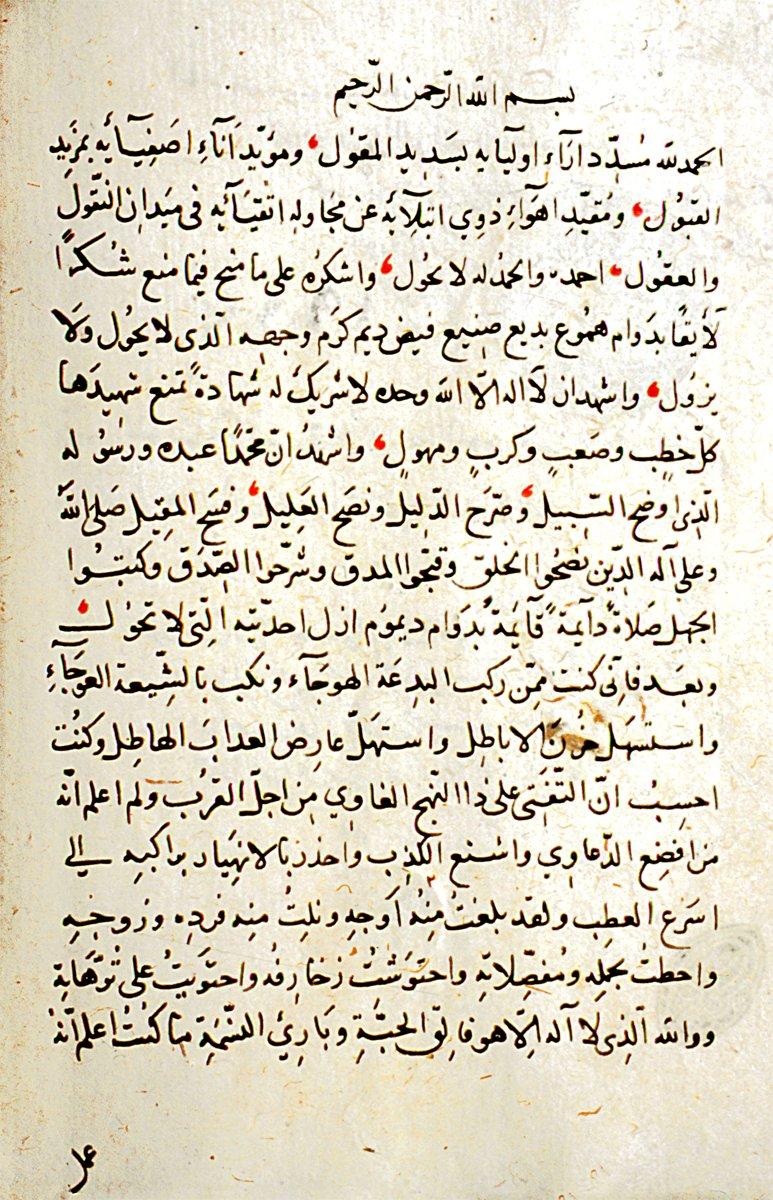 بسم الله الرّحمن الرّحيم
الحمد لله مُسدّد ارَآءِ اوليايه بسَديد المقوُل، ومؤيّد آنآءِ اصَفِيآئه بمزَيد
القبوُل، ومُقيّدِ اهوَآءِ ذوِي ابتلآئه عن مجَاوله اتقيَآئه فى ميَدان النّقول
والعقوُل، احمده والحمدُ له لا يحُول، واشكرُه على ما منح فيما منع شُكرًا
لآيقًا بدَوام هموُع بديع صنيع فيض ديم كرَم وجهه الّذى لا يحوُل ولَا
يزوُل، واشهد ان لآاله الّا الله وحده لا شريكَ له شهادةً تمنع شهيدَها
كلّ خطبٍ وصَعبٍ وكربٍ ومهولٍ، واشهدُ انّ محمّدًا عبده ورسُوله
الّذى اوضح السّبيل، وصّرَح الدّليل ونصَح العَليل، وفسَح المقيل صَلى اللهُ
وعلى آله الّذين نصَحُوا الخلق وقبّحوا المدق وشرّحوا الصّدَق وكبتُوا
الجهل صَلاةً دآيمةً قآيمَةً بدَوام ديموُم ازل احدّيته الّتى لا تحوُل
وبعَد فانّى كنت ممّن ركب البدعَة الهوجَآء ونكب بالشّيعة العوجَآءِ
واستسهَل حُزنَ الاباطِل واستهَلّ عارِض العذابَ الهاطِل وكنُت
احسِبُ انّ التّفَتى على ذا النّهج الغاوِي مِن اجلّ القرُب ولم اعلم انّه
من افضِع الدّعاوِي واشنع الكذِب واحذر بالانهِيَاد براكبِه الى
اسرَع العطِب ولقد بلغتُ مِنْهُ اوَجهِ ونلِتُ مِنه فردِه وزوجِهِ
واحَطتُ بجملِه ومُفصّلاتهِ واحتَوَشتُ زخارِفُه واحتوَيتُ على تُرّهَاتِه
ووالله الّذِى لآ اله اِلّا هو فالِق الحبَّةِ وبَارِئ النسَّمَةِ ما كنُتُ اعلم انّهُ